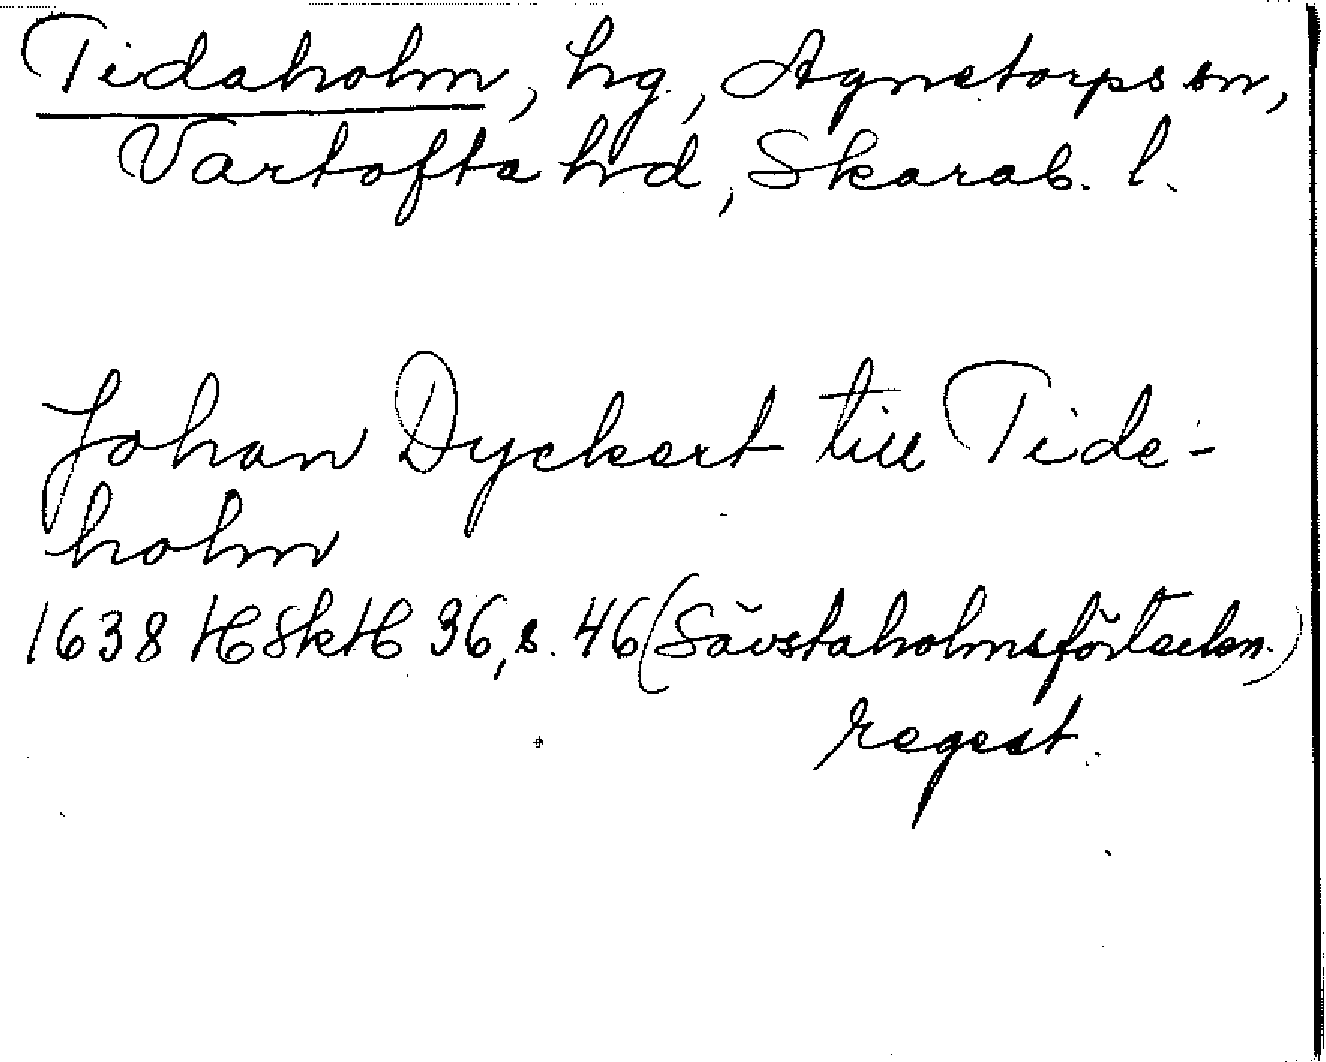 Tidaholm, hg., Agnetorps sn,
Vartofta hd, Skarab. l.
Johan Dyckert till Tide-
holm
1638 HSkH 36, s. 46 (Sävstaholmsförteckn.)
regest.